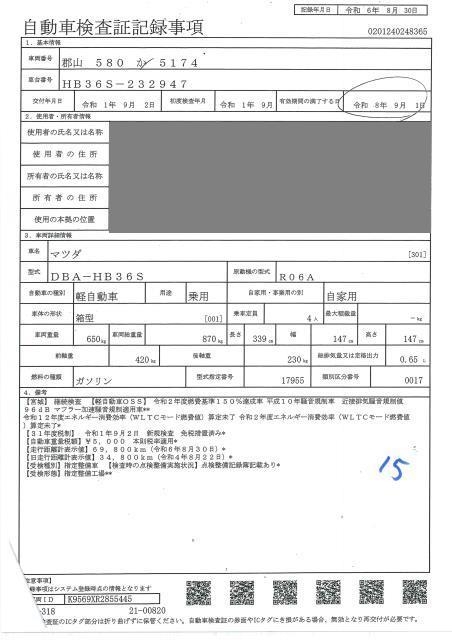 記録年月日 令和 6年 8月 30日
自動車検査証記録事項
0201240248365
1. 基本情報
車両番号 郡山 580 か 5174
車台番号 HB36S-232947
交付年月日 令和 1年 9月 2日 初度検査年月 令和 1年 9月 有効期間の満了する日 令和 8年 9月 1日
2. 使用者・所有者情報
使用者の氏名又は名称
使用者の住所
所有者の氏名又は名称
所有者の住所
使用の本拠の位置
3. 車両詳細情報
車名 マツダ [301]
型式 DBA-HB36S 原動機の型式 R06A
自動車の種別 軽自動車 用途 乗用 自家用・事業用の別 自家用
車体の形状 箱型 [001] 乗車定員 4人 最大積載量 -kg
車両重量 650kg 車両総重量 870kg 長さ 339cm 幅 147cm 高さ 147cm
前軸重 420kg 後軸重 230kg 総排気量又は定格出力 0.65L
燃料の種類 ガソリン 型式指定番号 17955 類別区分番号 0017
4. 備考
【宮城】 継続検査 【軽自動車OSS】 令和2年度燃費基準150%達成車 平成10年騒音規制車 近接排気騒音規制値
96dB マフラー加速騒音規制適用車**
令和12年度エネルギー消費効率(WLTCモード燃費値)算定未了 令和2年度エネルギー消費効率(WLTCモード燃費値
)算定未了*
【31年度税制】 令和1年9月2日 新規検査 免税措置済み*
【自動車重量税額】¥5,000 本則税率適用*
【走行距離計表示値】69,800km(令和6年8月30日)*
【旧走行距離計表示値】34,800km(令和4年8月22日)*
【受検種別】指定整備車 【検査時の点検整備実施状況】点検整備記録簿記載あり*
【受検形態】指定整備工場**
15
注意事項】
事項はシステム登録時点の情報となります
両ID K9569XR2855445
318 21-00820
査証のICタグ部分は折り曲げずに保管してください。自動車検査証の券面やICタグにき損がある場合、無効となり再交付が必要です。